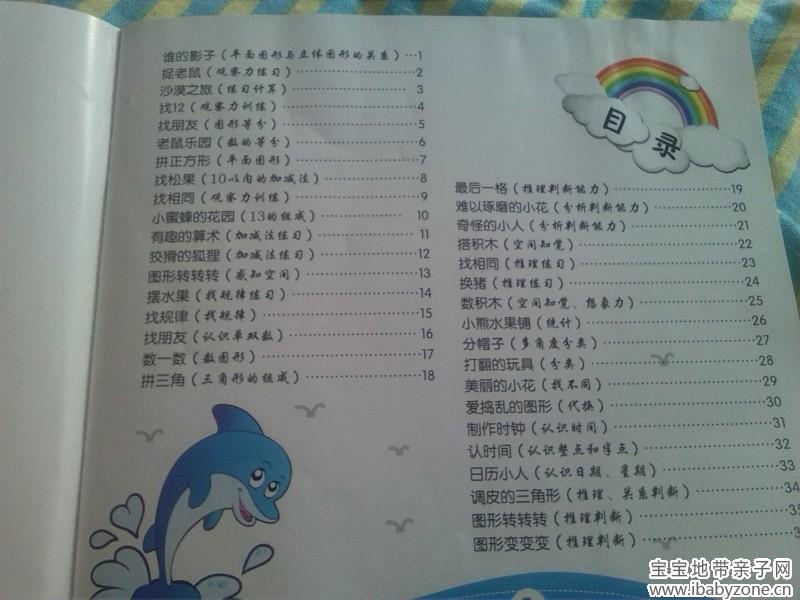 目录
谁的影子(平面图形与立体图形的关系)…1
捉老鼠(观察力练习)…2
沙漠之旅(练习计算)…3
找12(观察力训练)…4
找朋友(图形等分)…5
老鼠乐园(数的等分)…6
拼正方形(平面图形)…7
找松果(10以内的加减法)…8
找相同(观察力训练)…9
小蜜蜂的花园(13的组成)…10
有趣的算术(加减法练习)…11
狡猾的狐狸(加减法练习)…12
图形转转转(感知空间)…13
摆水果(找规律练习)…14
找规律(找规律)…15
找朋友(认识单双数)…16
数一数(数图形)…17
拼三角(三角形的组成)…18
最后一格(推理判断能力)…19
难以琢磨的小花(分析判断能力)…20
奇怪的小人(分析判断能力)…21
搭积木(空间知觉)…22
找相同(推理练习)…23
换猪(推理练习)…24
数积木(空间知觉、想象力)…25
小熊水果铺(统计)…26
分帽子(多角度分类)…27
打翻的玩具(分类)…28
美丽的小花(找不同)…29
爱捣乱的图形(代换)…30
制作时钟(认识时间)…31
认时间(认识整点和半点)…32
日历小人(认识日期、星期)…33
调皮的三角形(推理、关系判断)…34
图形转转转(推理判断)…35
图形变变变(推理判断)…3
宝宝地带亲子网
www.ibabyzone.cn